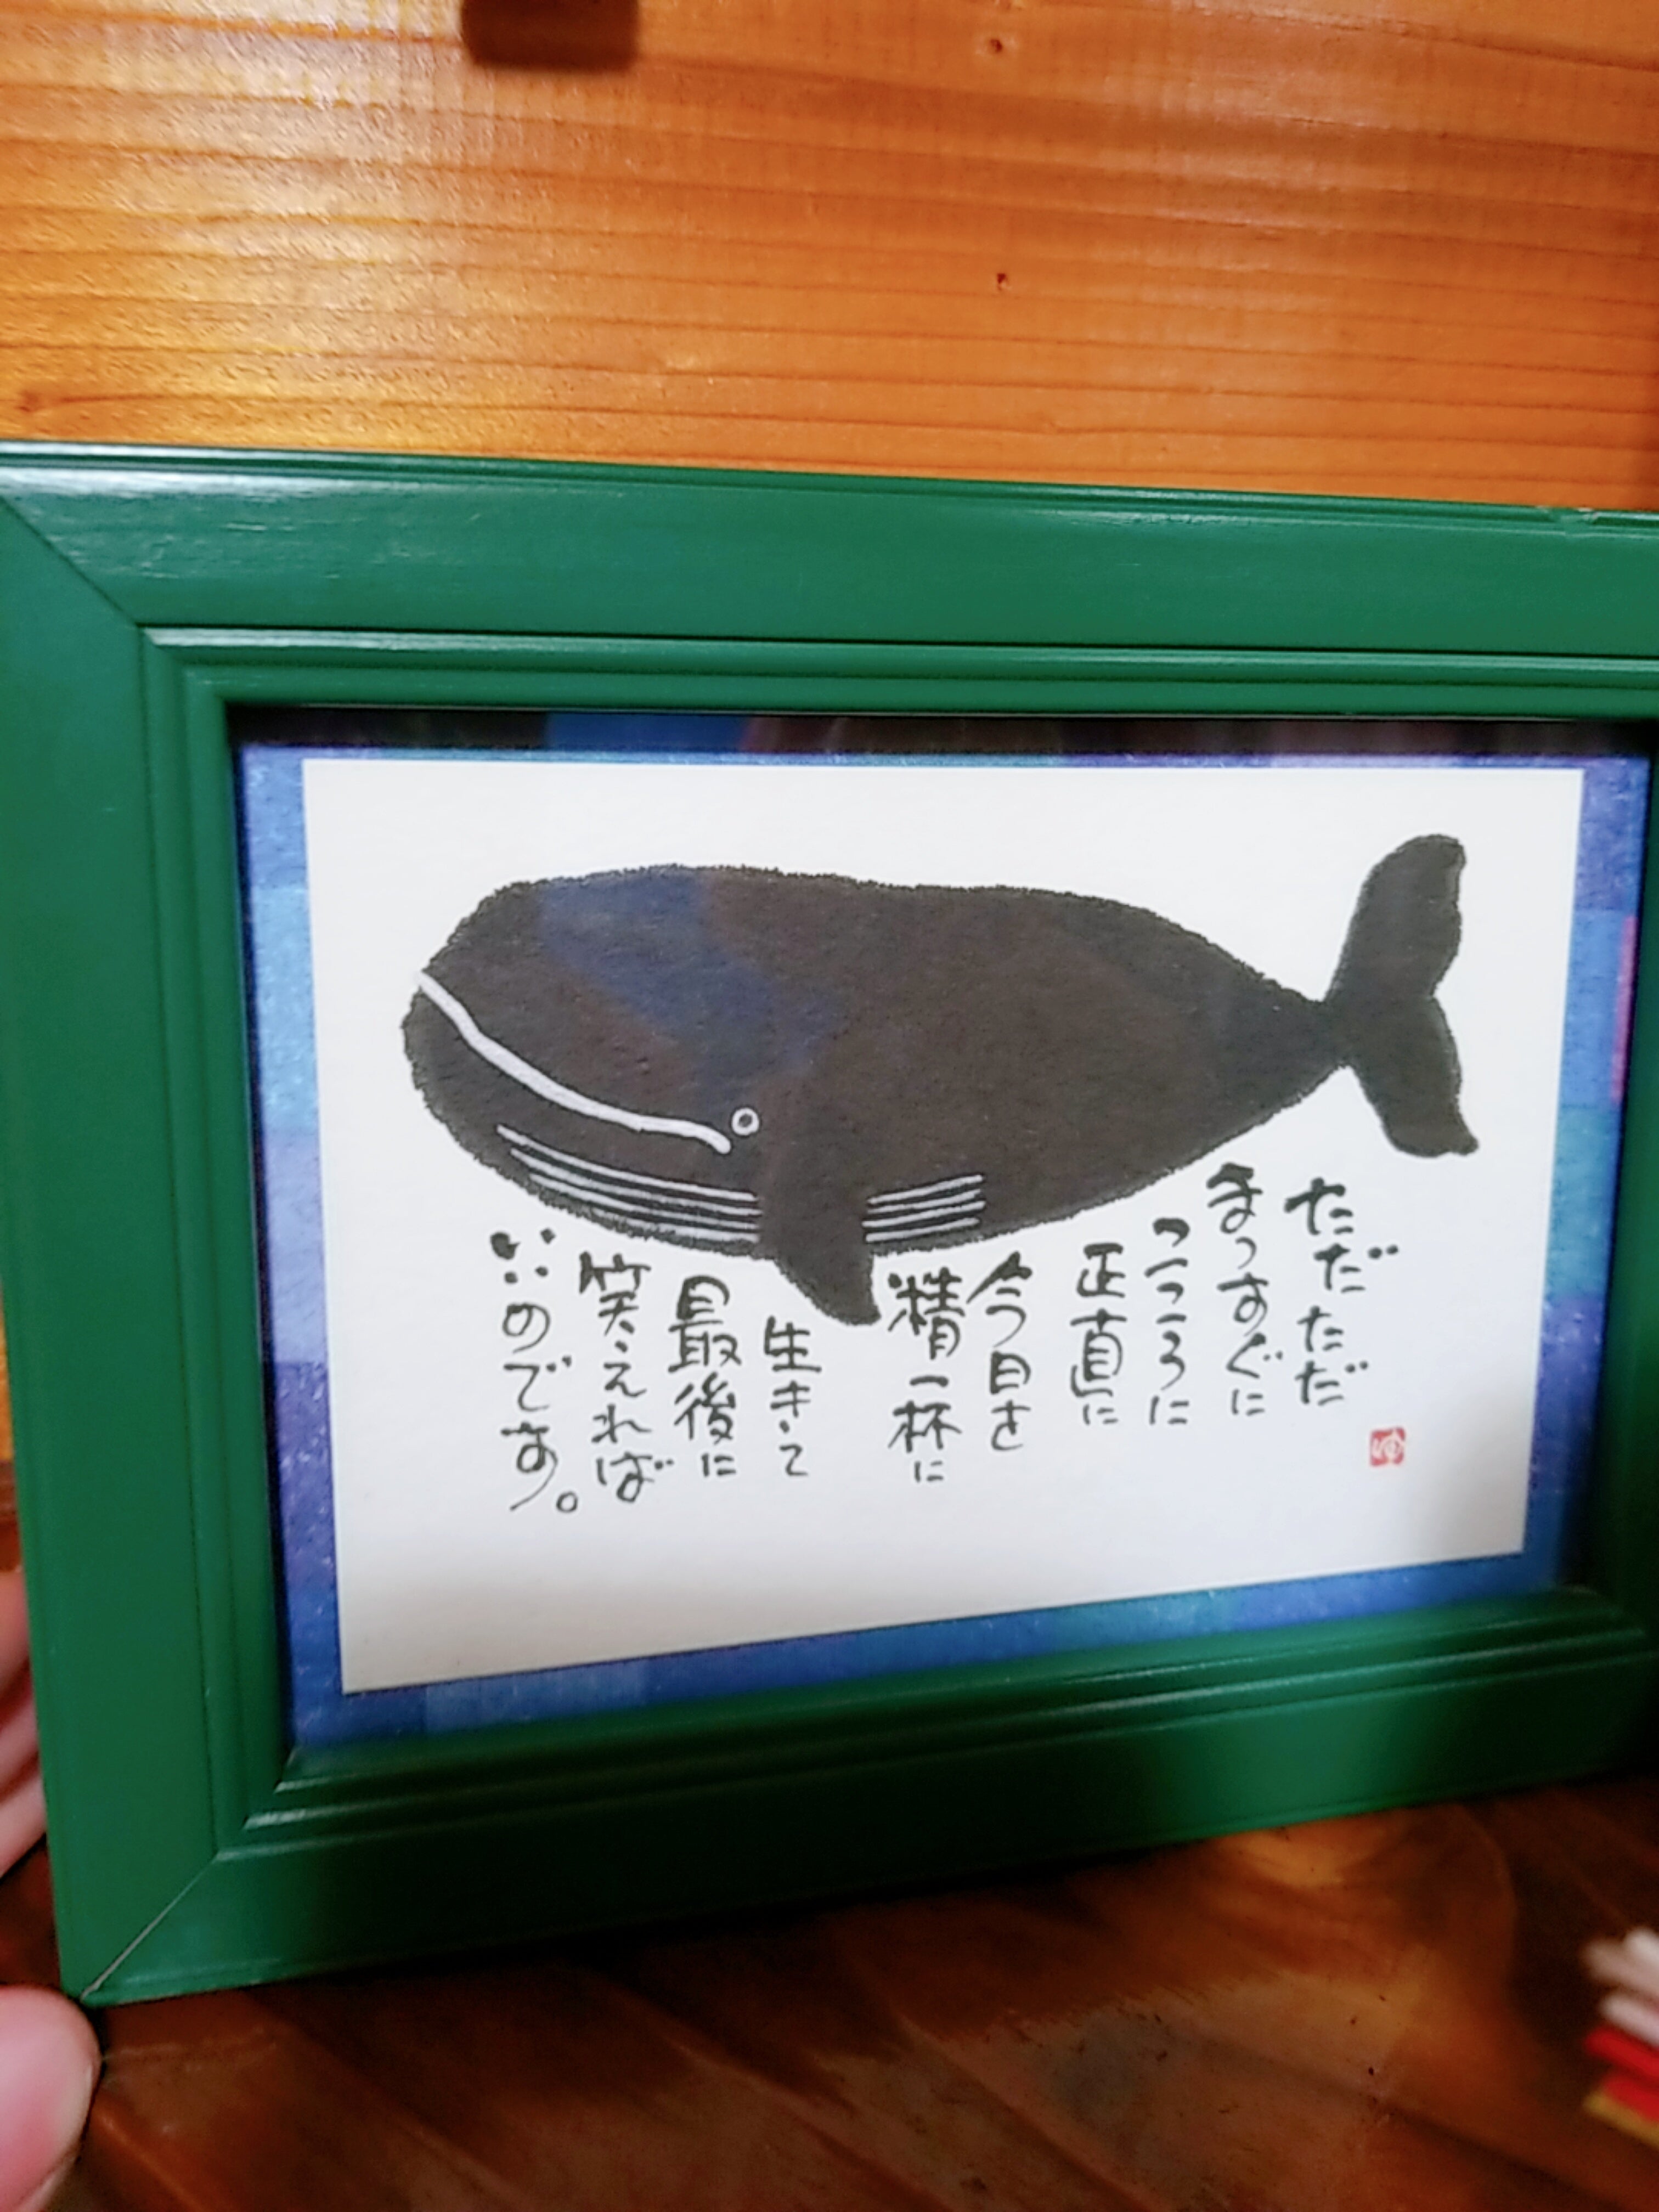 ただただ
まっすぐに
こころに
正直に
今日を
精一杯に
生きて
最後に
笑えれば
いいのです。